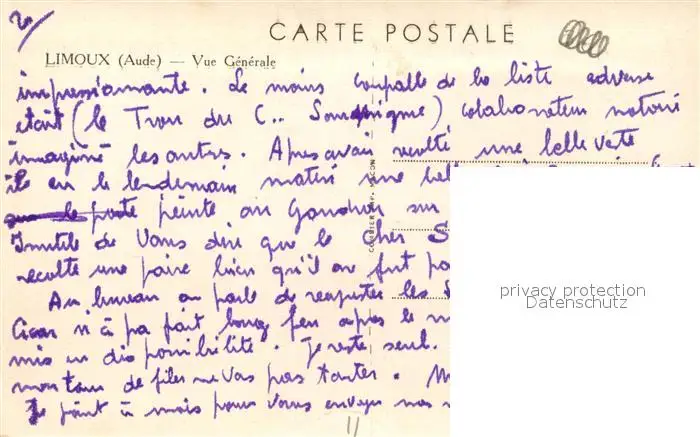 2/
CARTE POSTALE
LIMOUX (Aude) — Vue Générale
impressionnante. Le moins coupable de la liste adverse
etait (le Trou du C.. ) colaborateur notoire
imaginé les autres. Apres avoir recolté une belle veste
il en le lendemain matin une bel
le porte peinte au Goudron sur
Inutile de Vous dire que le Cher S
recolte une paire bien qu'il ne fut pa
Au bureau on parle de reajuster les
n'à pa fait long feu apres le m
mis en disponibilité. Je reste seul.
de files ne Vas pas tarder. M
Je joint à mois pour Vous envoyer nos
11
COMBIER IMP. MACON
privacy protection
Datenschutz